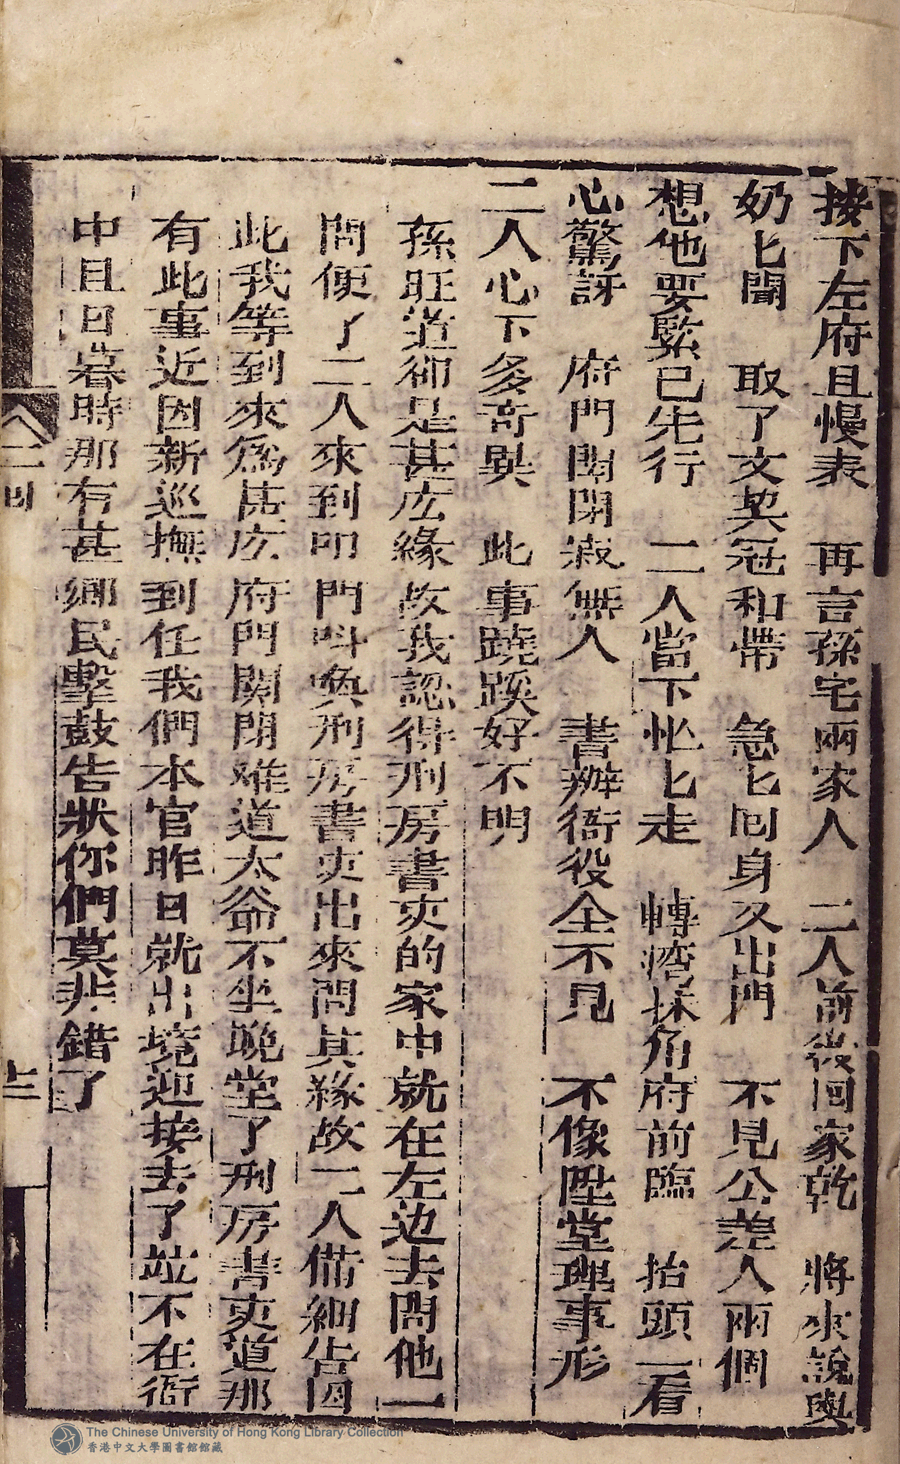 按下左府且慢表　再言孫宅兩家人　二人前後回家乾　將來說與
奶匕聞　取了文契冠和帶　急匕回身又出門　不見公差人兩個
想他要緊已先行　二人當下忙匕走　轉灣抹角府前臨　抬頭一看
心驚訝　府門閉寂無人　書辦衙役全不見　不像陞堂理事形
二人心下多奇異　此事蹺蹊好不明
孫旺道卻是甚広緣故我認得刑房書吏的家中就在左边去問他一
問便了二人來到叩門呌喚刑房書吏出來問其緣故二人備細告因
此我等到來爲甚広府門關閉难道太爺不坐晚堂了刑房書吏道那
有此事近因新巡撫到任我們本官昨日就出境迎接去了並不在衙
中且日暮時那有甚鄉民擊鼓告狀你們莫非錯了
二回
The Chinese University of Hong Kong Library Collection
香港中文大學圖書館館藏